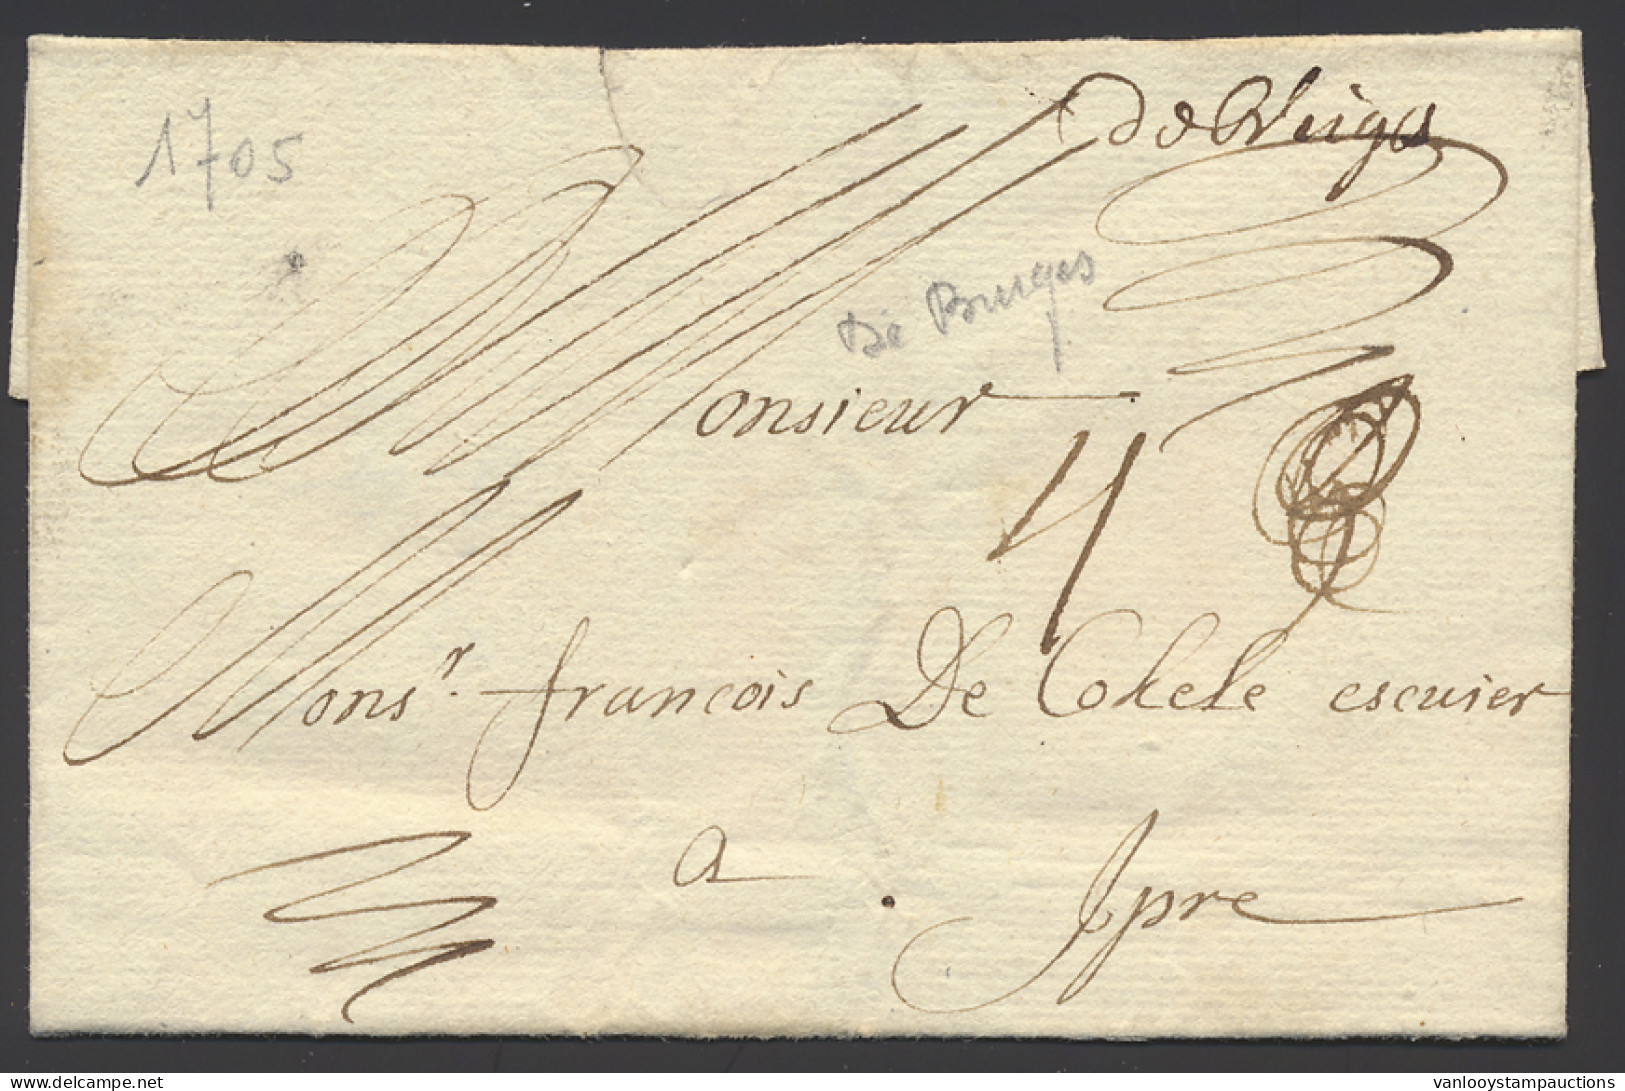 1705
de Bruges
De Bruges
Monsieur
4
Monsr. francois De Cokele escuier
a Ipre
© delcampe.net
vanlooystampauctions